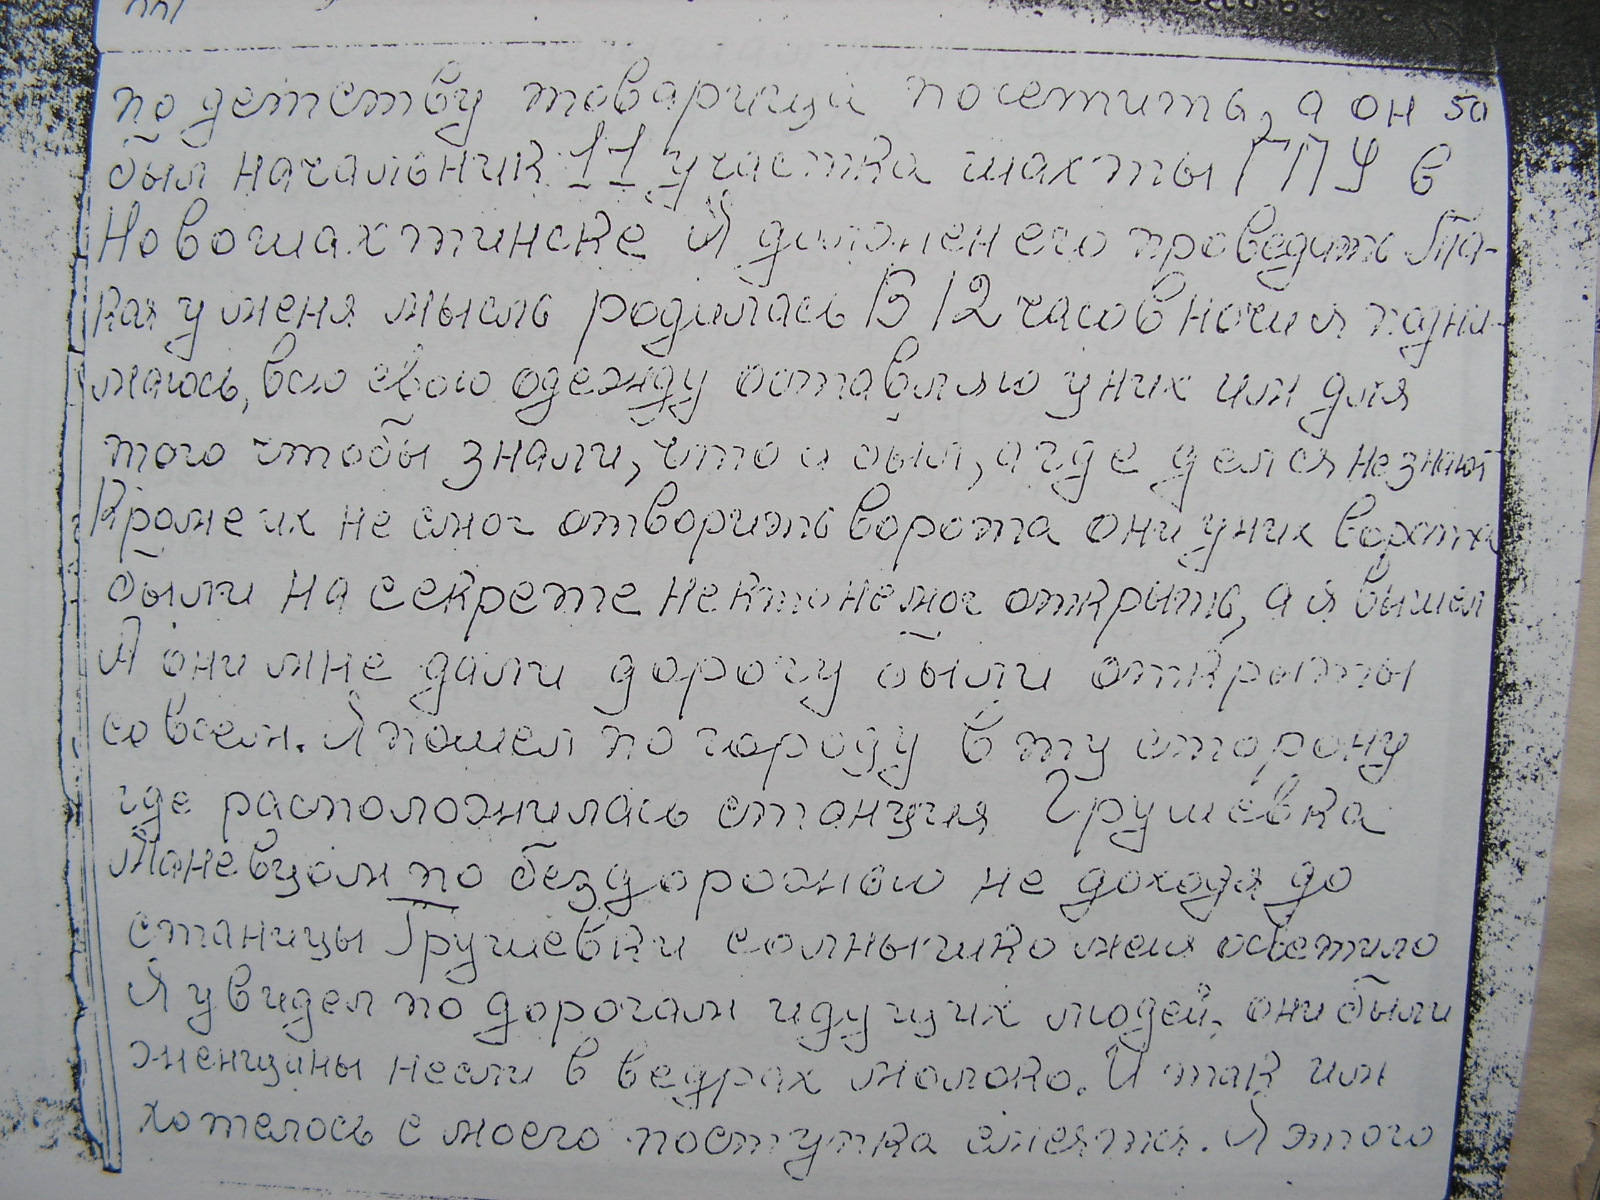 по детству товарища посетить, а он 50
был начальник 11 участка шахты ГПУ в
Новошахтинске Я должен его проведить Та-
кая у меня мысль родилась В 12 часов ночи я подни-
маюсь, всю свою одежду оставляю у них им для
того чтобы знали, что я был, а где делся не знают
Кроме их не смог отворить ворота они у них ворота
были на секрете некто не мог открыть, а я вышел
А они мне дали дорогу были открыты
совсем. Я пошел по городу в ту сторону
где расположилась станция Грушевка
по бездорожью не доходя до
станицы Грушевки солнышко меня осветило
Я увидел по дорогам идущих людей, они были
женщины несли в ведрах молоко. И так им
хотелось с моего поступка смеятся. Я этого